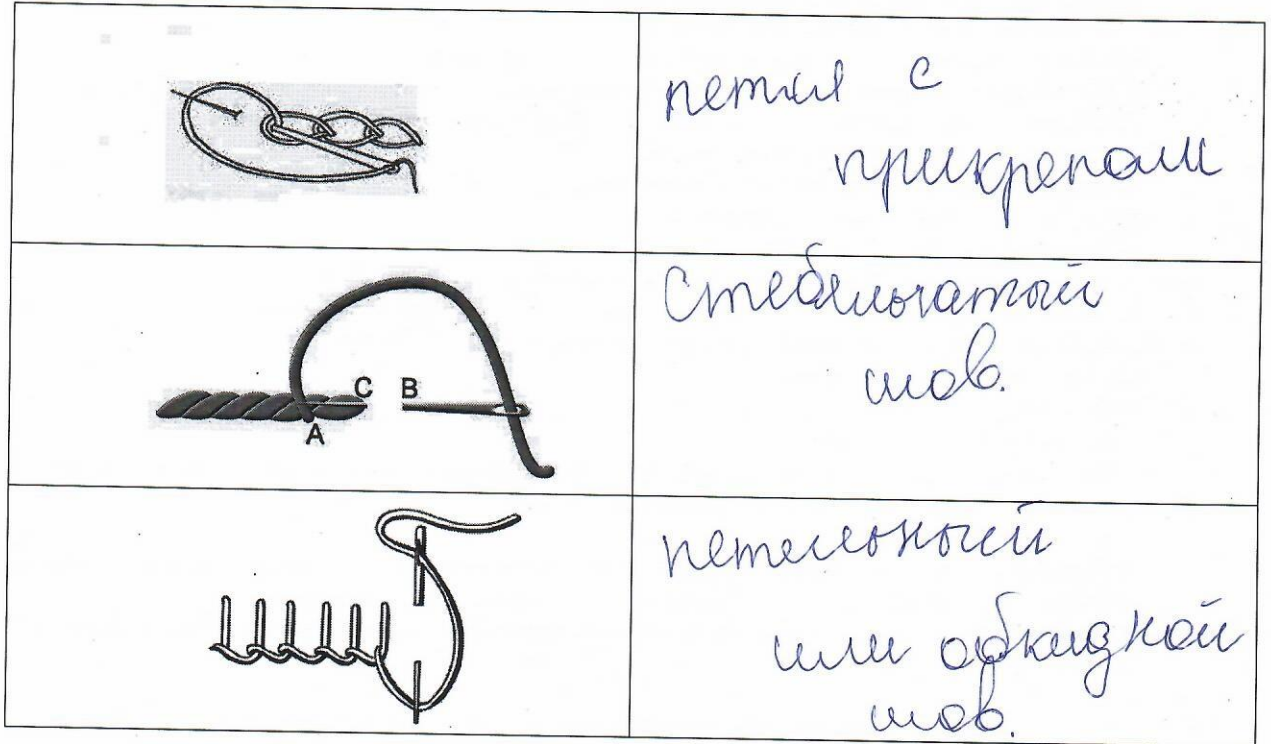 петля с
прикрепом
C B
A
Стебельчатый
шов.
петельный
или обкидной
шов.